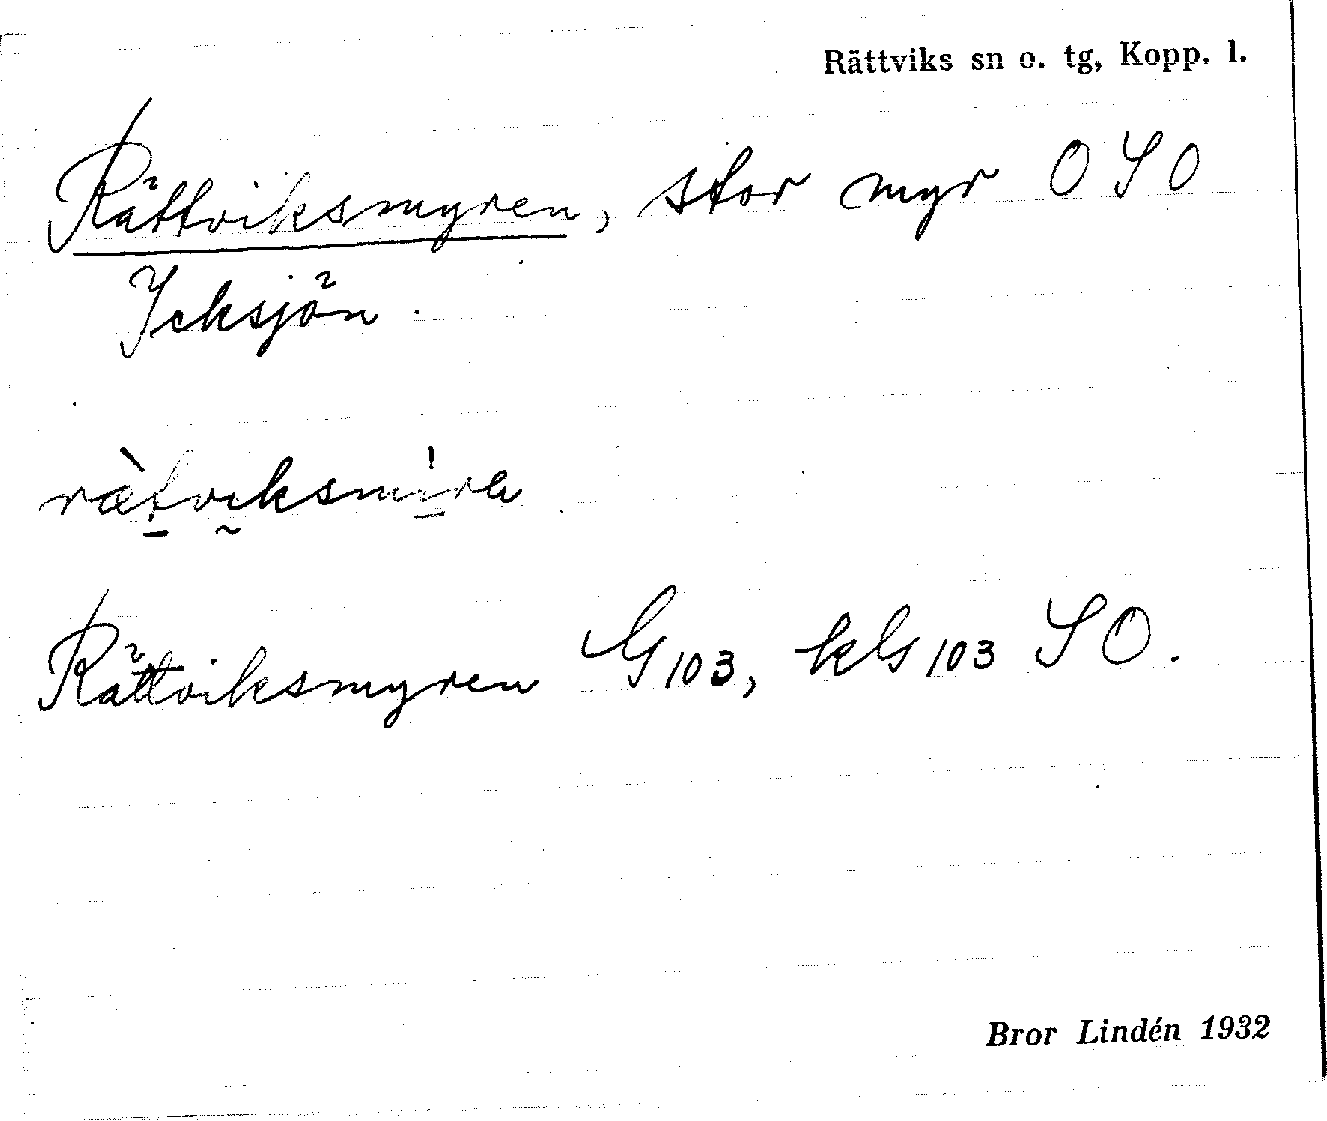 Rättviks sn o. tg, Kopp. l.
Rättviksmyren, stor myr OSO
Icksjön.
rætviksmira
Rättviksmyren G103, kG103 SO.
Bror Lindén 1932